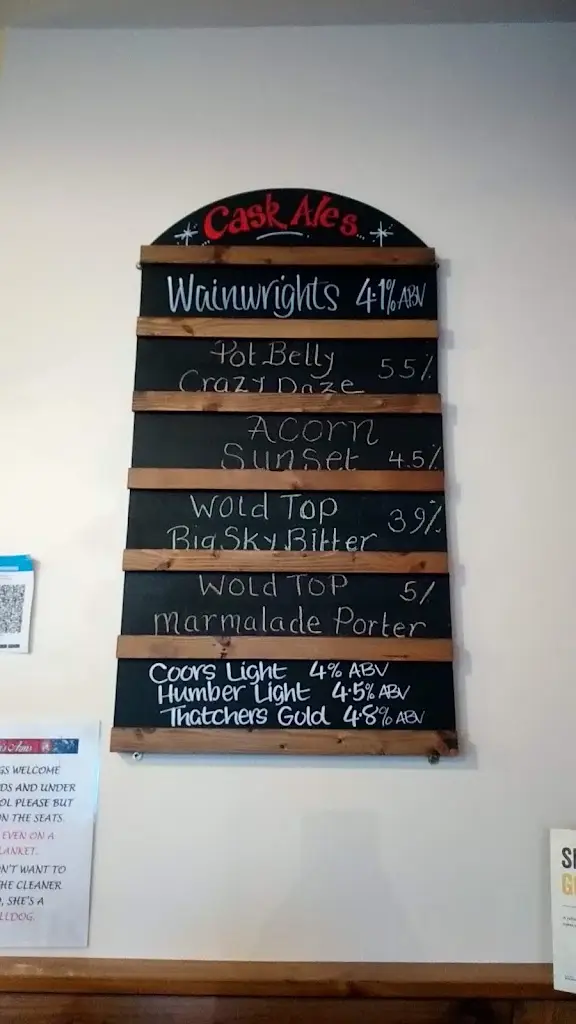 Cask Ales
Wainwrights 4.1% ABV
Pot Belly
Crazy Daze 5.5%
Acorn
Sunset 4.5%
Wold Top
Big Sky Bitter 3.9%
Wold Top 5%
Marmalade Porter
Coors Light 4% ABV
Humber Light 4.5% ABV
Thatchers Gold 4.8% ABV
GS WELCOME
DS AND UNDER
OL PLEASE BUT
N THE SEATS.
EVEN ON A
LANKET.
N'T WANT TO
HE CLEANER
, SHE'S A
LLDOG.